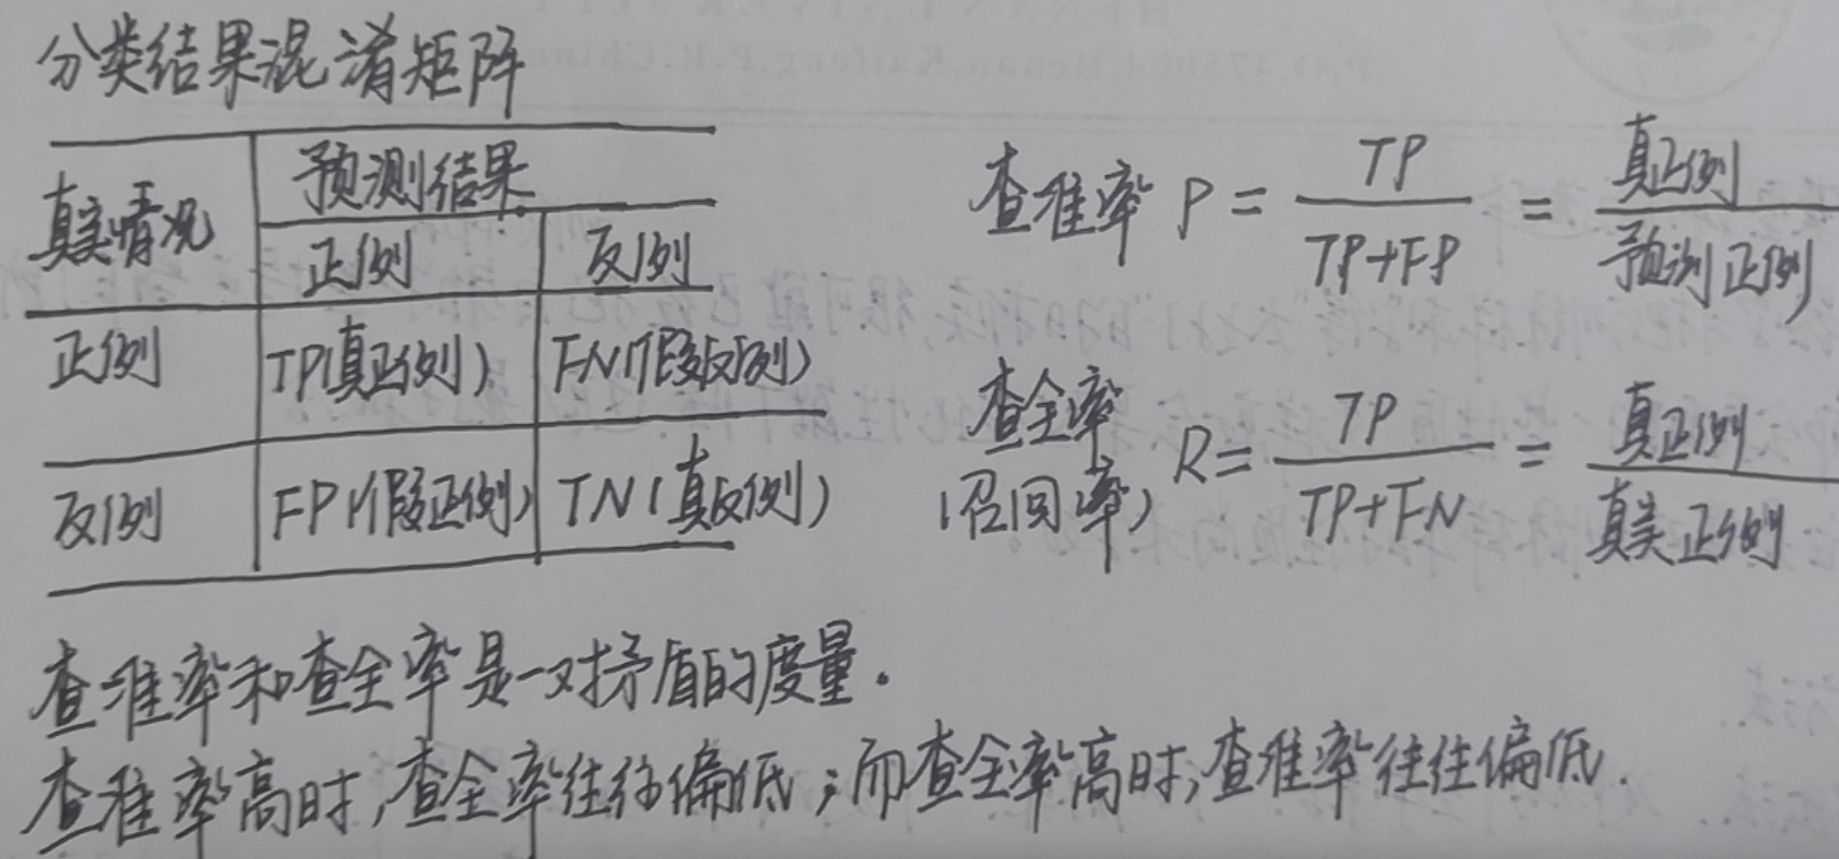 分类结果混淆矩阵
真实情况 预测结果
正例 反例
正例 TP(真正例) FN(假反例)
反例 FP(假正例) TN(真反例)
查准率 P = TP / TP+FP = 真正例 / 预测正例
查全率 (召回率) R = TP / TP+FN = 真正例 / 真实正例
查准率和查全率是一对矛盾的度量.
查准率高时,查全率往往偏低;而查全率高时,查准率往往偏低.